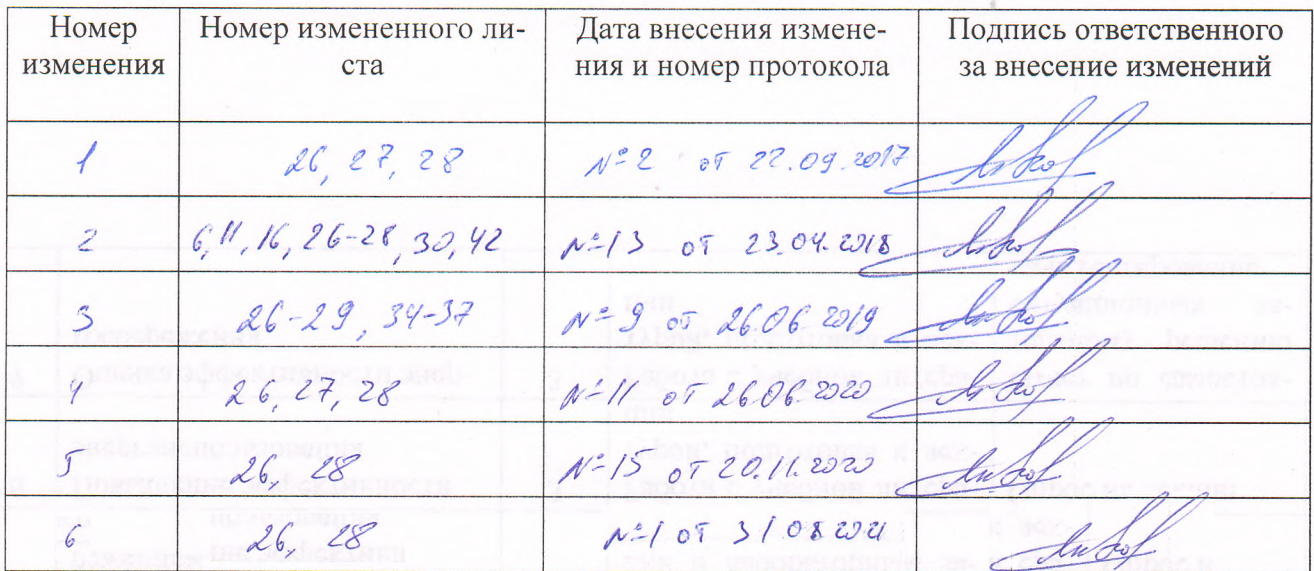 Номер изменения Номер измененного ли- Дата внесения измене- Подпись ответственного
изменения ста ния и номер протокола за внесение изменений
1 26, 27, 28 № 2 от 22.09.2017
2 6, 11, 16, 26-28, 30, 42 № 13 от 23.04.2018
3 26-29, 34-37 № 9 от 26.06.2019
4 26, 27, 28 № 11 от 26.06.2020
5 26, 28 № 15 от 20.11.2020
6 26, 28 № 1 от 31.08.2021